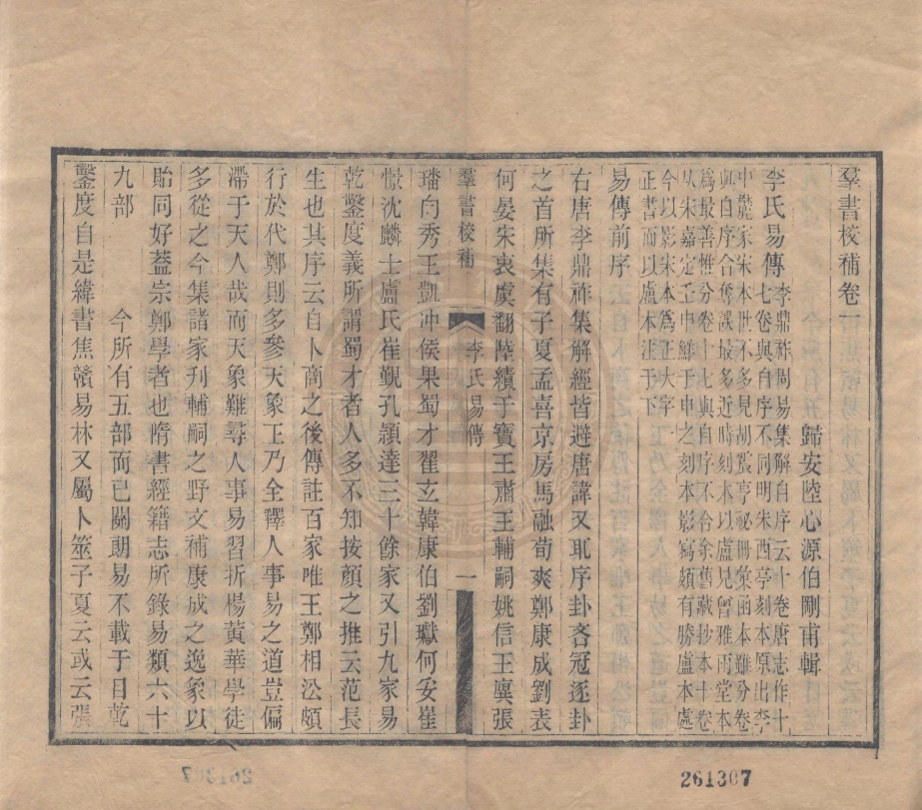 羣書校補卷一
歸安陸心源伯剛甫輯
李氏易傳
李鼎祚周易集解自序云十卷唐志作十
七卷與自序不同明朱西亭刻本原出李
中麓家宋本世不多見胡震亨祕冊彙函本雖分卷
與自序合奪誤最多近時刻本以盧見曾雅雨堂本
爲最善惟分卷十七與自序不合余舊藏抄本十卷
从宋嘉定壬申鮮于申之刻本影寫頗有勝盧本處
今以影宋本爲正大字
正書而以盧本注于下
易傳前序
右唐李鼎祚集解經皆避唐諱又取序卦各冠逐卦
之首所集有子夏孟喜京房馬融荀爽鄭康成劉表
何晏宋衷虞翻陸績于寶王肅王輔嗣姚信王廙張
羣書校補 李氏易傳 一
璠向秀王凱冲侯果蜀才翟玄韓康伯劉瓛何妥崔
憬沈麟士盧氏崔覲孔頴達三十餘家又引九家易
乾鑿度義所謂蜀才者人多不知按顔之推云范長
生也其序云自卜商之後傳註百家唯王鄭相㳂頗
行於代鄭則多參天象王乃全釋人事易之道豈偏
滯于天人哉而天象難尋人事易習折楊黃華學徒
多從之今集諸家刋輔嗣之野文補康成之逸象以
貽同好蓋宗鄭學者也隋書經籍志所錄易類六十
九部 今所有五部而已關朗易不載于目乾
鑿度自是緯書焦贛易林又屬卜筮子夏云或云張
261307